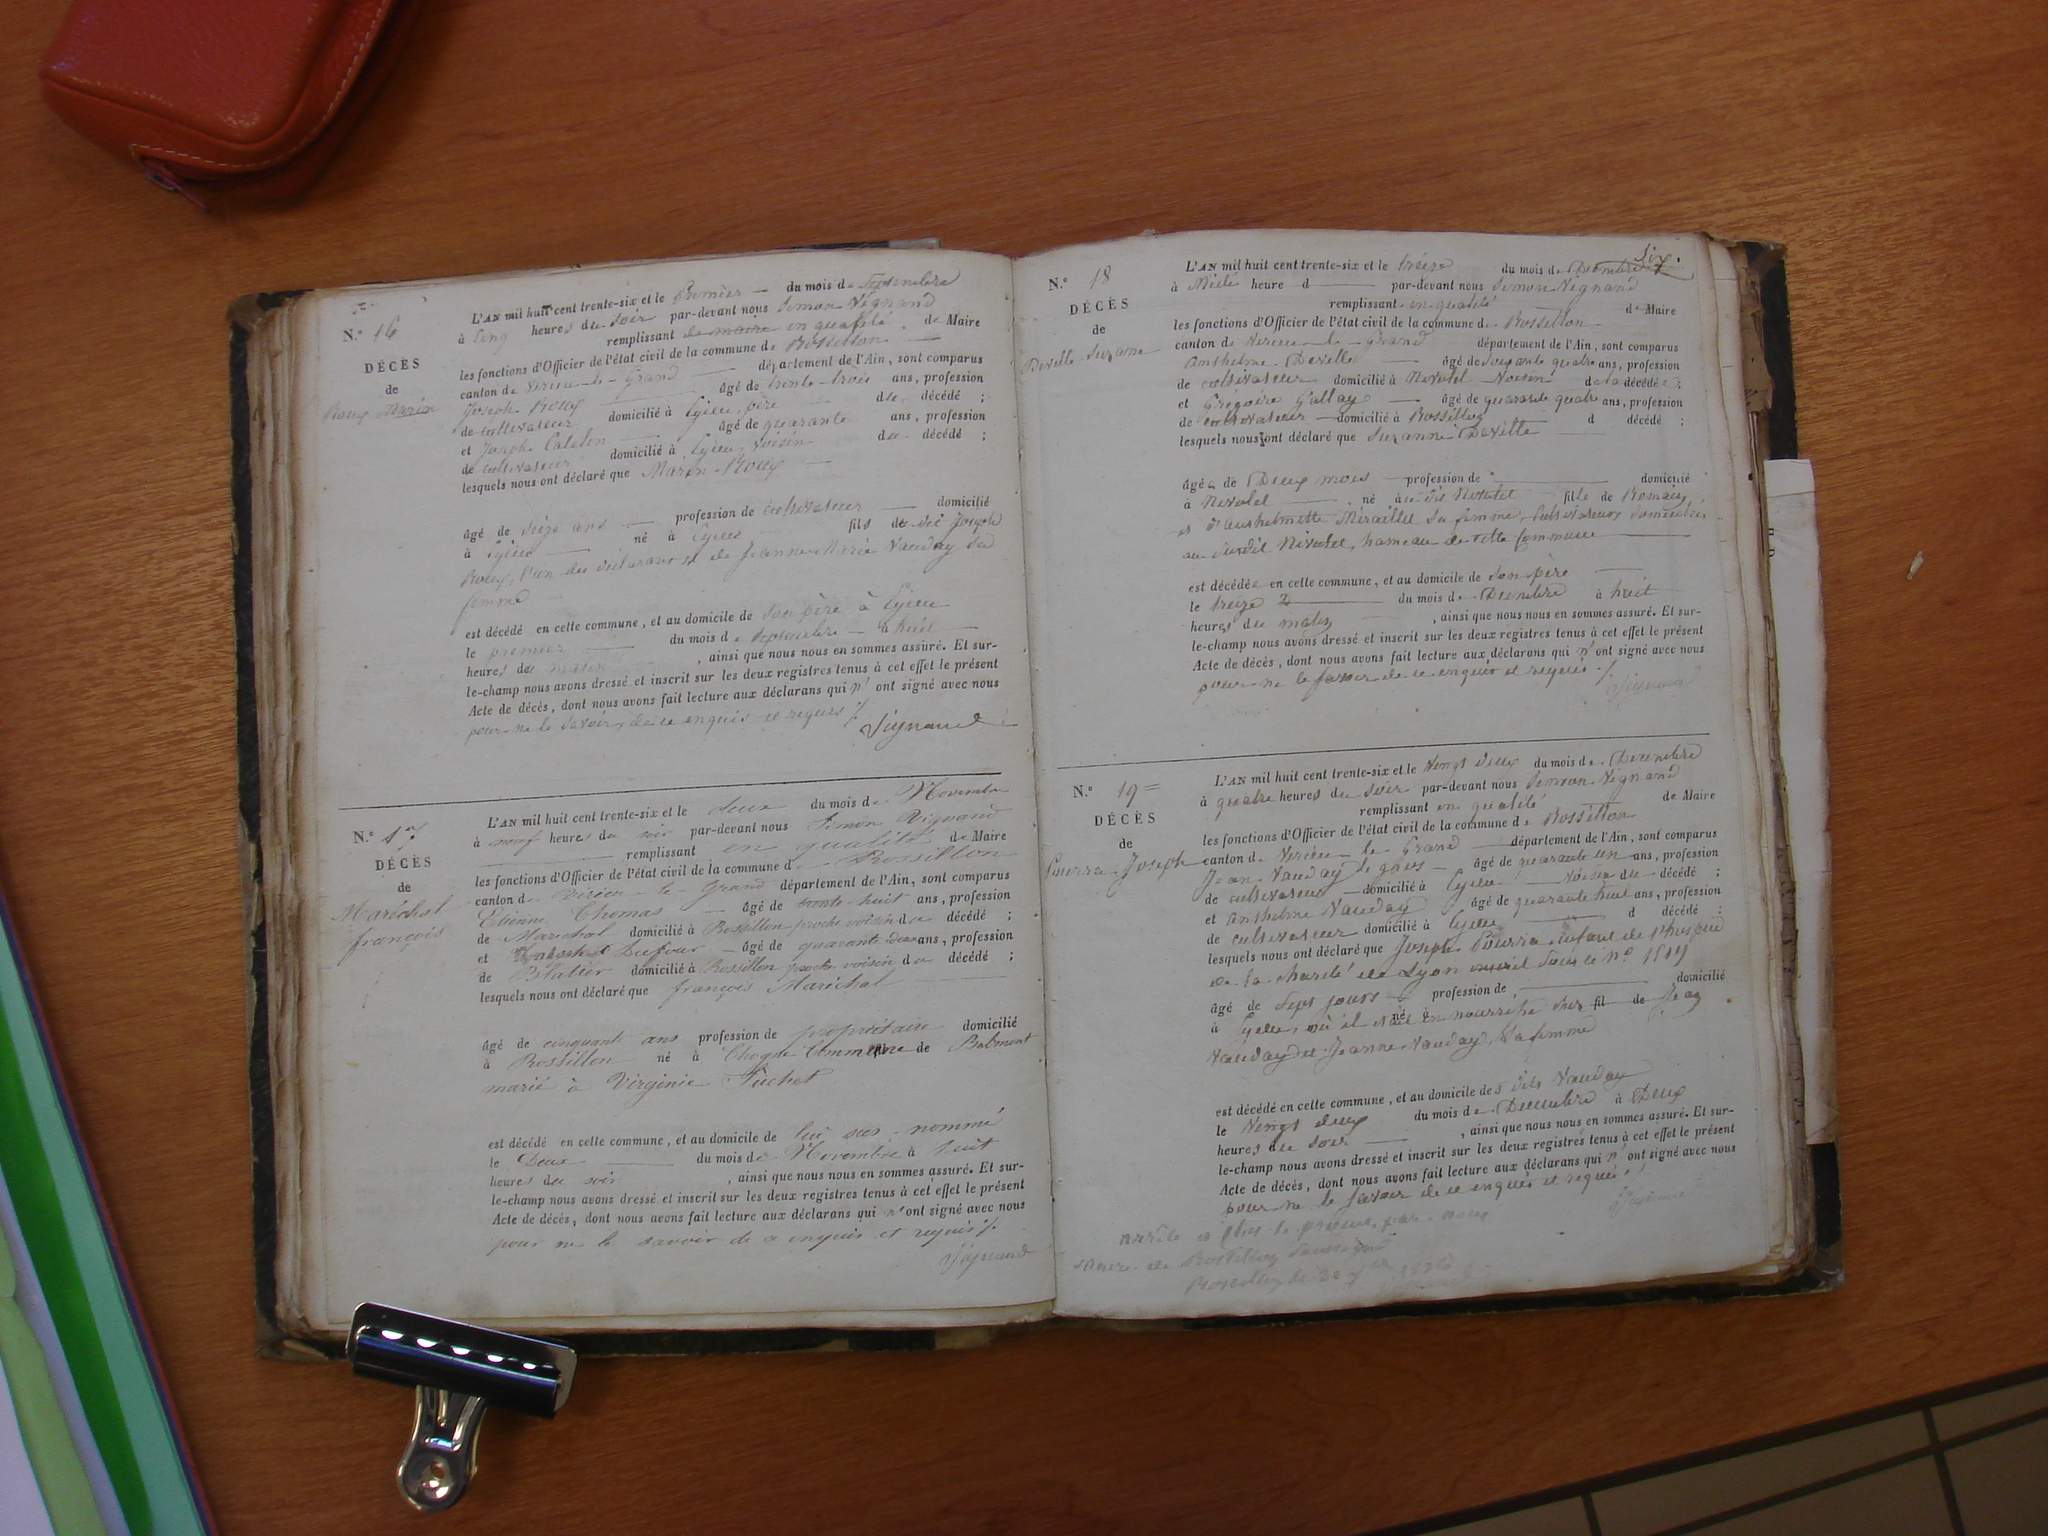 N.° 16
DÉCÈS
de
Roux Marin
L'AN mil huit cent trente-six et le Premier du mois de Septembre
à Cinq heures du soir par-devant nous Simon Vignand
remplissant de maire en qualité de Maire
les fonctions d'Officier de l'état civil de la commune de Rossillon
canton de Virieu-le-Grand département de l'Ain, sont comparus
Joseph Roux âgé de trente-trois ans, profession
de cultivateur domicilié à Egieu, père du décédé ;
et Joseph Catelin âgé de quarante ans, profession
de cultivateur domicilié à Egieu, voisin du décédé ;
lesquels nous ont déclaré que Marin Roux
âgé de seize ans profession de cultivateur domicilié
à Egieu né à Egieu fils de dit Joseph
Roux, l'un des déclarans et de Jeanne-Marie Vauday sa
femme
est décédé en cette commune, et au domicile de son père à Egieu
le premier du mois de septembre à huit
heures du matin , ainsi que nous nous en sommes assuré. Et sur-
le-champ nous avons dressé et inscrit sur les deux registres tenus à cet effet le présent
Acte de décès, dont nous avons fait lecture aux déclarans qui n' ont signé avec nous
pour ne le savoir de ce enquis et requis
Vignand
N.° 17
DÉCÈS
de
Maréchal
françois
L'AN mil huit cent trente-six et le deux du mois de Novembre
à neuf heures du soir par-devant nous Simon Vignand
remplissant en qualité de Maire
les fonctions d'Officier de l'état civil de la commune de Rossillon
canton de Virieu-le-Grand département de l'Ain, sont comparus
Etienne Thomas âgé de trente-huit ans, profession
de Maréchal domicilié à Rossillon proche voisin du décédé ;
et Dufour âgé de quarante deux ans, profession
de domicilié à Rossillon proche voisin du décédé ;
lesquels nous ont déclaré que françois Maréchal
âgé de cinquante ans profession de propriétaire domicilié
à Rossillon né à Commune de Belmont
marié à Virginie
est décédé en cette commune, et au domicile de lui sus-nommé
le Deux du mois de Novembre à huit
heures du soir , ainsi que nous nous en sommes assuré. Et sur-
le-champ nous avons dressé et inscrit sur les deux registres tenus à cet effet le présent
Acte de décès, dont nous avons fait lecture aux déclarans qui n' ont signé avec nous
pour ne le savoir de ce enquis et requis
Vignand
Six.
N.° 18
DÉCÈS
de
Deville Suzanne
L'AN mil huit cent trente-six et le treize du mois de Décembre
à Midi heure d par-devant nous Simon Vignand
remplissant en qualité de Maire
les fonctions d'Officier de l'état civil de la commune de Rossillon
canton de Virieu-le-Grand département de l'Ain, sont comparus
Anthelme Deville âgé de soixante quatre ans, profession
de cultivateur domicilié à Nivolet voisin de la décédée ;
et Grégoire Gallay âgé de quarante quatre ans, profession
de cultivateur domicilié à Rossillon d décédé ;
lesquels nous ont déclaré que Suzanne Deville
âgée de Deux mois profession de domicilié
à Nivolet né à au dit Nivolet fille de Romain
et d'Anthelmette sa femme, Cultivateurs domiciliés
au susdit Nivolet, hameau de cette Commune
est décédée en cette commune, et au domicile de son père
le treize du mois de Décembre à huit
heures du matin , ainsi que nous nous en sommes assuré. Et sur-
le-champ nous avons dressé et inscrit sur les deux registres tenus à cet effet le présent
Acte de décès, dont nous avons fait lecture aux déclarans qui n' ont signé avec nous
pour ne le savoir de ce enquis et requis
Vignand
N.° 19
DÉCÈS
de
Pourra Joseph
L'AN mil huit cent trente-six et le Vingt deux du mois de Décembre
à quatre heures du soir par-devant nous Simon Vignand
remplissant en qualité de Maire
les fonctions d'Officier de l'état civil de la commune de Rossillon
canton de Virieu-le-Grand département de l'Ain, sont comparus
Jean Vauday âgé de quarante un ans, profession
de cultivateur domicilié à Egieu voisin du décédé ;
et Anthelme Vauday âgé de quarante huit ans, profession
de cultivateur domicilié à Egieu d décédé ;
lesquels nous ont déclaré que Joseph Pourra enfant de l'hospice
de la charité de Lyon sous le N.° 1519
âgé de sept jours profession de domicilié
à Egieu, où il était né à en nourrice fil de Jean
Vauday et Jeanne Vauday, sa femme
est décédé en cette commune, et au domicile des dits Vauday
le Vingt deux du mois de Décembre à Deux
heures du soir , ainsi que nous nous en sommes assuré. Et sur-
le-champ nous avons dressé et inscrit sur les deux registres tenus à cet effet le présent
Acte de décès, dont nous avons fait lecture aux déclarans qui n' ont signé avec nous
pour ne le savoir de ce enquis et requis
Arrêté et clos le présent par nous
Maire de Rossillon
Rossillon le